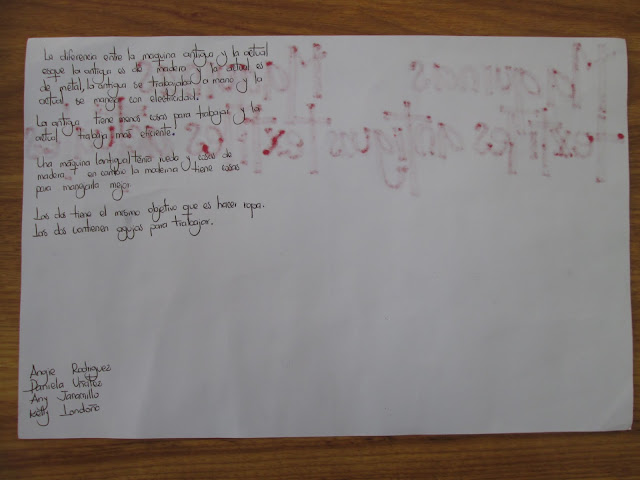 La diferencia entre la maquina antigua y la actual
esque la antigua es de madera y la actual es
de metal, la antigua se trabajaba a mano y la
actual se maneja con electricidad.
La antigua tiene menos cosas para trabajar y la
actual trabaja mas eficiente.
Una máquina (antigua) tenia rueda y cosas de
madera, en cambio la moderna tiene cosas
para manejarla mejor
Las dos tiene el mismo objetivo que es hacer ropa.
Las dos contienen agujas para trabajar.
Maquinas
textiles antiguas
textiles
Angie Rodriguez
Daniela
Any Jaramillo
Ketty Londoño